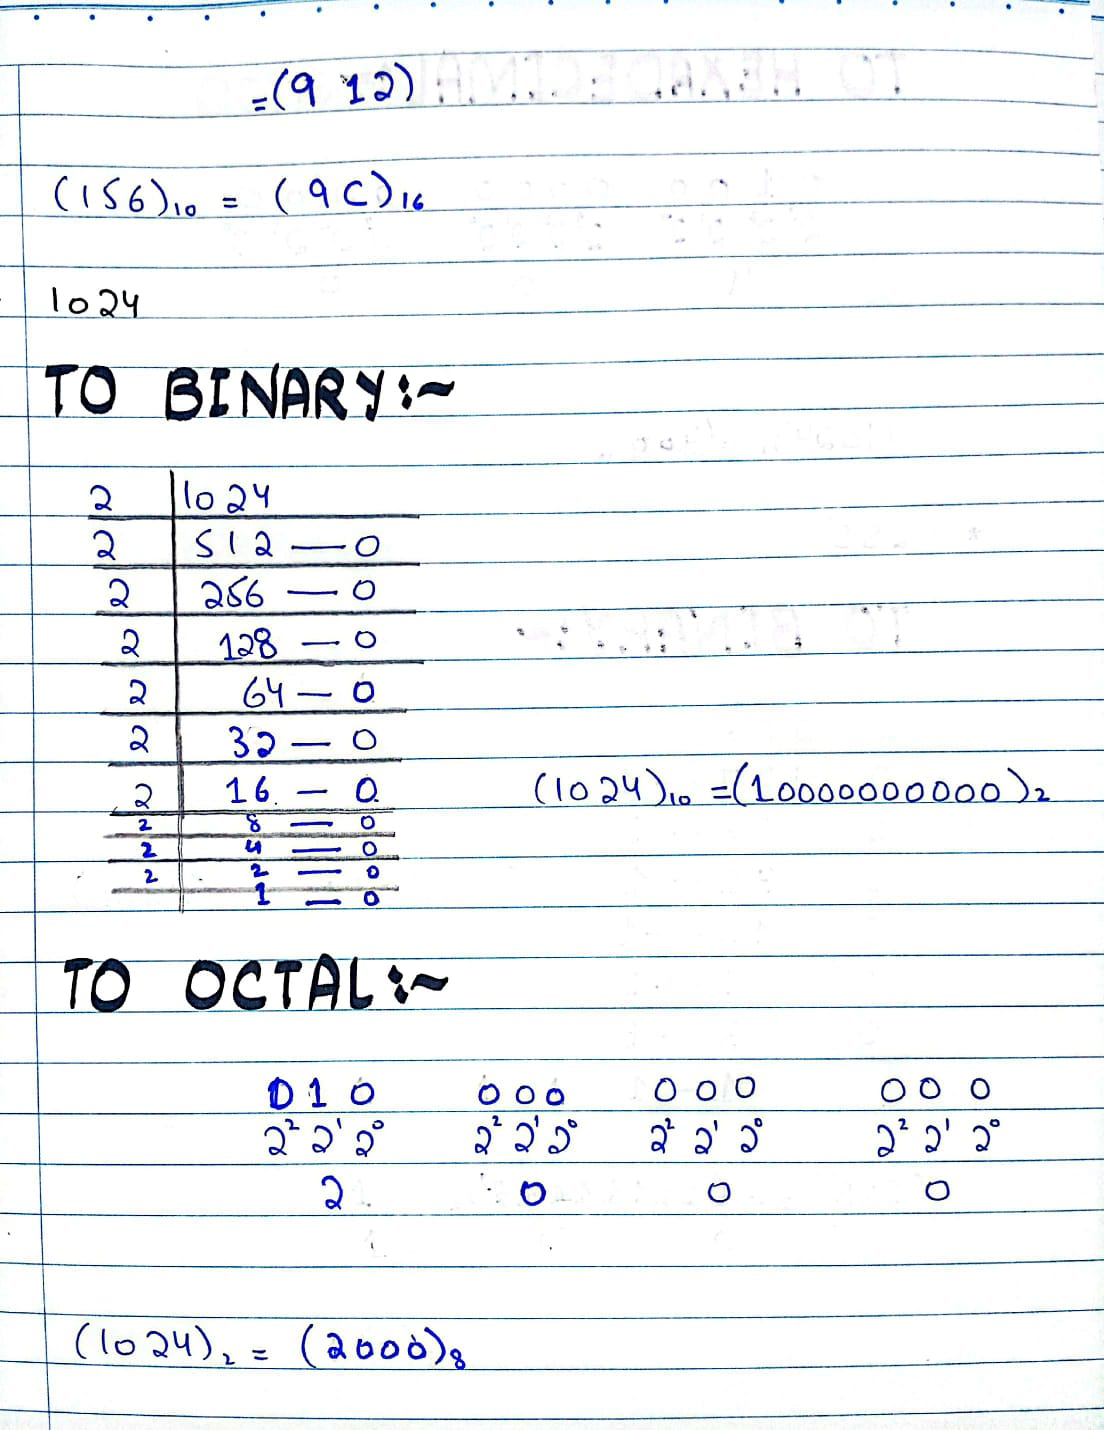 =(9 12)
(156)₁₀ = (9C)₁₆
1024
TO BINARY:~
2 | 1024
2 | 512 — 0
2 | 256 — 0
2 | 128 — 0
2 | 64 — 0
2 | 32 — 0
2 | 16 — 0
2 | 8 — 0
2 | 4 — 0
2 | 2 — 0
1 — 0
(1024)₁₀ =(10000000000)₂
TO OCTAL:~
0 1 0 0 0 0 0 0 0 0 0 0
2² 2¹ 2⁰ 2² 2¹ 2⁰ 2² 2¹ 2⁰ 2² 2¹ 2⁰
2 0 0 0
(1024)₂ = (2000)₈